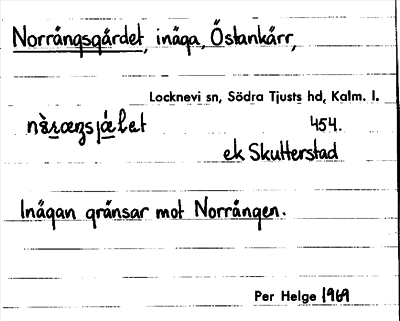 Norrångsgärdet, inäga, Östankärr,
Locknevi sn, Södra Tjusts hd, Kalm. l.
454.
ek Skutterstad
Inägan gränsar mot Norrången.
Per Helge 1969